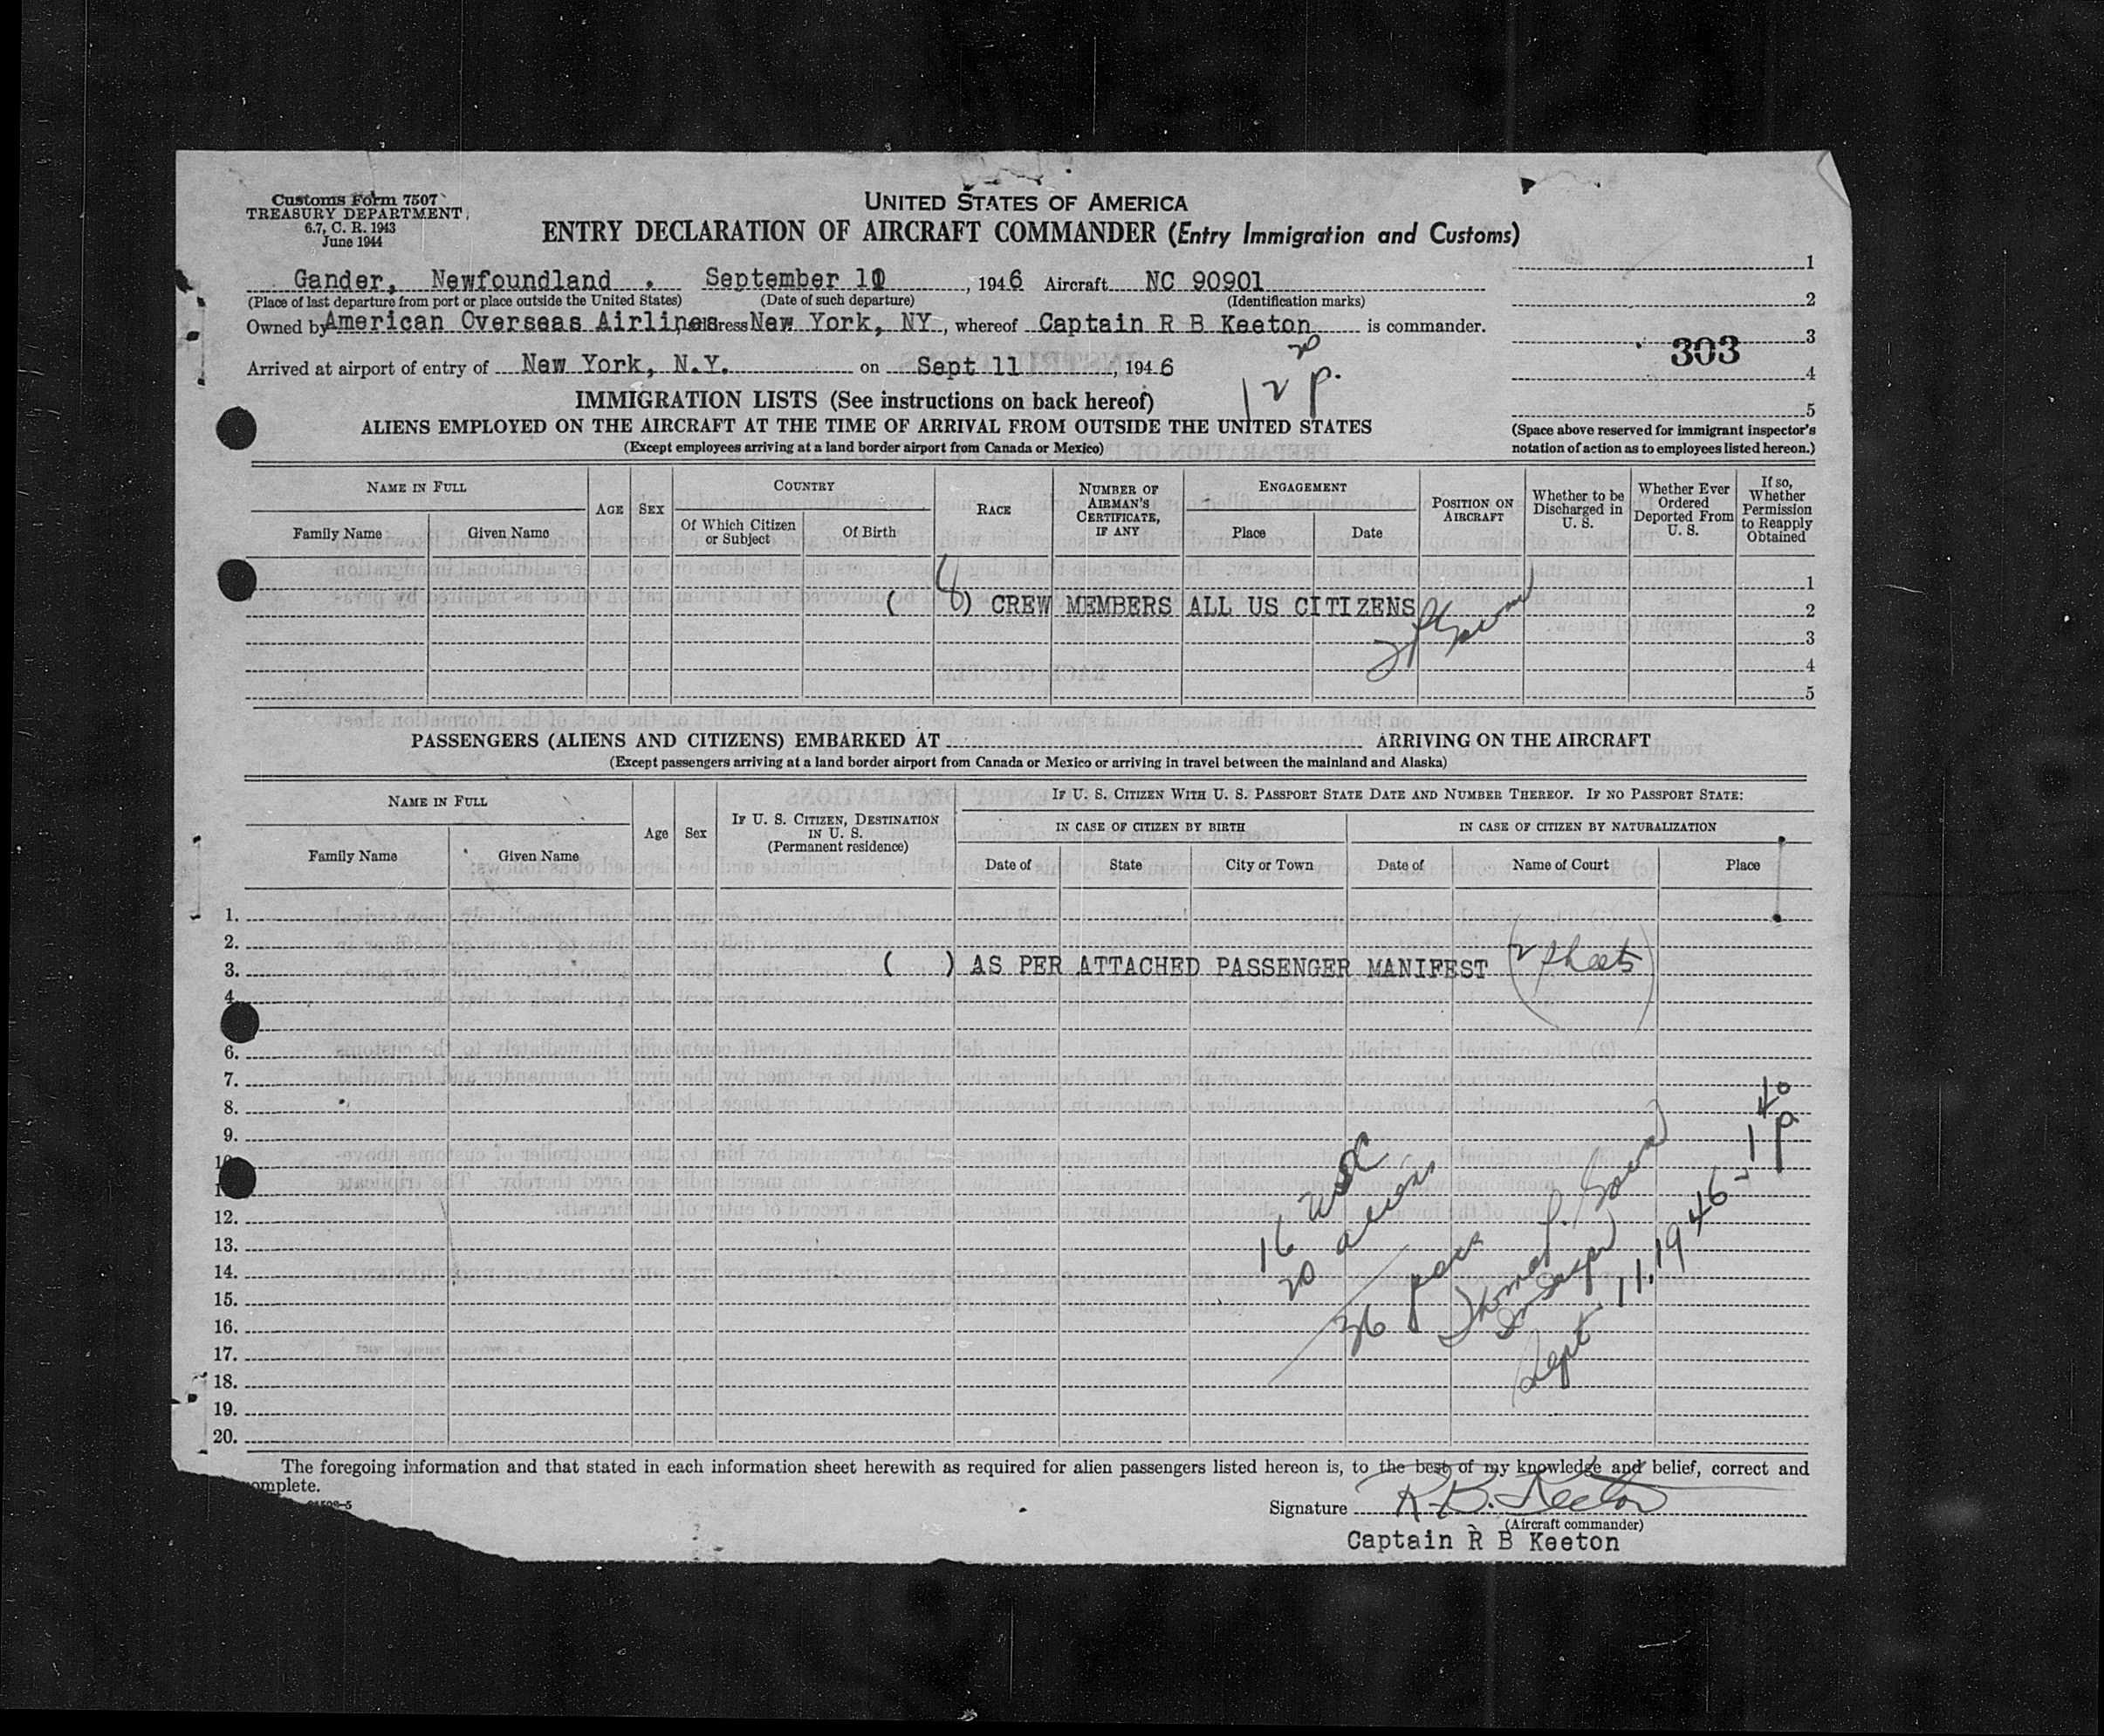 Customs Form 7507
TREASURY DEPARTMENT
6.7, C. R. 1943
June 1944
UNITED STATES OF AMERICA
ENTRY DECLARATION OF AIRCRAFT COMMANDER (Entry Immigration and Customs)
Gander, Newfoundland . September 1 , 1946 Aircraft NC 90901
(Place of last departure from port or place outside the United States) (Date of such departure) (Identification marks)
Owned by American Overseas Airlines ress New York, NY , whereof Captain R B Keeton is commander.
Arrived at airport of entry of New York, N.Y. on Sept 11 , 1946
12 20 p.
1
2
3
303
4
5
(Space above reserved for immigrant inspector's
notation of action as to employees listed hereon.)
IMMIGRATION LISTS (See instructions on back hereof)
ALIENS EMPLOYED ON THE AIRCRAFT AT THE TIME OF ARRIVAL FROM OUTSIDE THE UNITED STATES
(Except employees arriving at a land border airport from Canada or Mexico)
NAME IN FULL
Family Name Given Name
AGE SEX
COUNTRY
Of Which Citizen or Subject Of Birth
RACE
NUMBER OF AIRMAN'S CERTIFICATE, IF ANY
ENGAGEMENT
Place Date
POSITION ON AIRCRAFT
Whether to be Discharged in U. S.
Whether Ever Ordered Deported From U. S.
If so, Whether Permission to Reapply Obtained
1
( 8 ) CREW MEMBERS ALL US CITIZENS 2
3
4
5
PASSENGERS (ALIENS AND CITIZENS) EMBARKED AT ARRIVING ON THE AIRCRAFT
(Except passengers arriving at a land border airport from Canada or Mexico or arriving in travel between the mainland and Alaska)
NAME IN FULL
Family Name Given Name
Age Sex
IF U. S. CITIZEN, DESTINATION IN U. S.
(Permanent residence)
IF U. S. CITIZEN WITH U. S. PASSPORT STATE DATE AND NUMBER THEREOF. IF NO PASSPORT STATE:
IN CASE OF CITIZEN BY BIRTH IN CASE OF CITIZEN BY NATURALIZATION
Date of State City or Town Date of Name of Court Place
1.
2.
3. ( ) AS PER ATTACHED PASSENGER MANIFEST (2 sheets)
4.
6.
7.
8.
9.
12.
13.
14.
15.
16.
17.
18.
19.
20.
16 USC
20 aliens
36 pass
Thomas P.
Sept 11, 1946 - 1 40 p
The foregoing information and that stated in each information sheet herewith as required for alien passengers listed hereon is, to the best of my knowledge and belief, correct and
omplete.
Signature R. B. Keeton
(Aircraft commander)
Captain R B Keeton